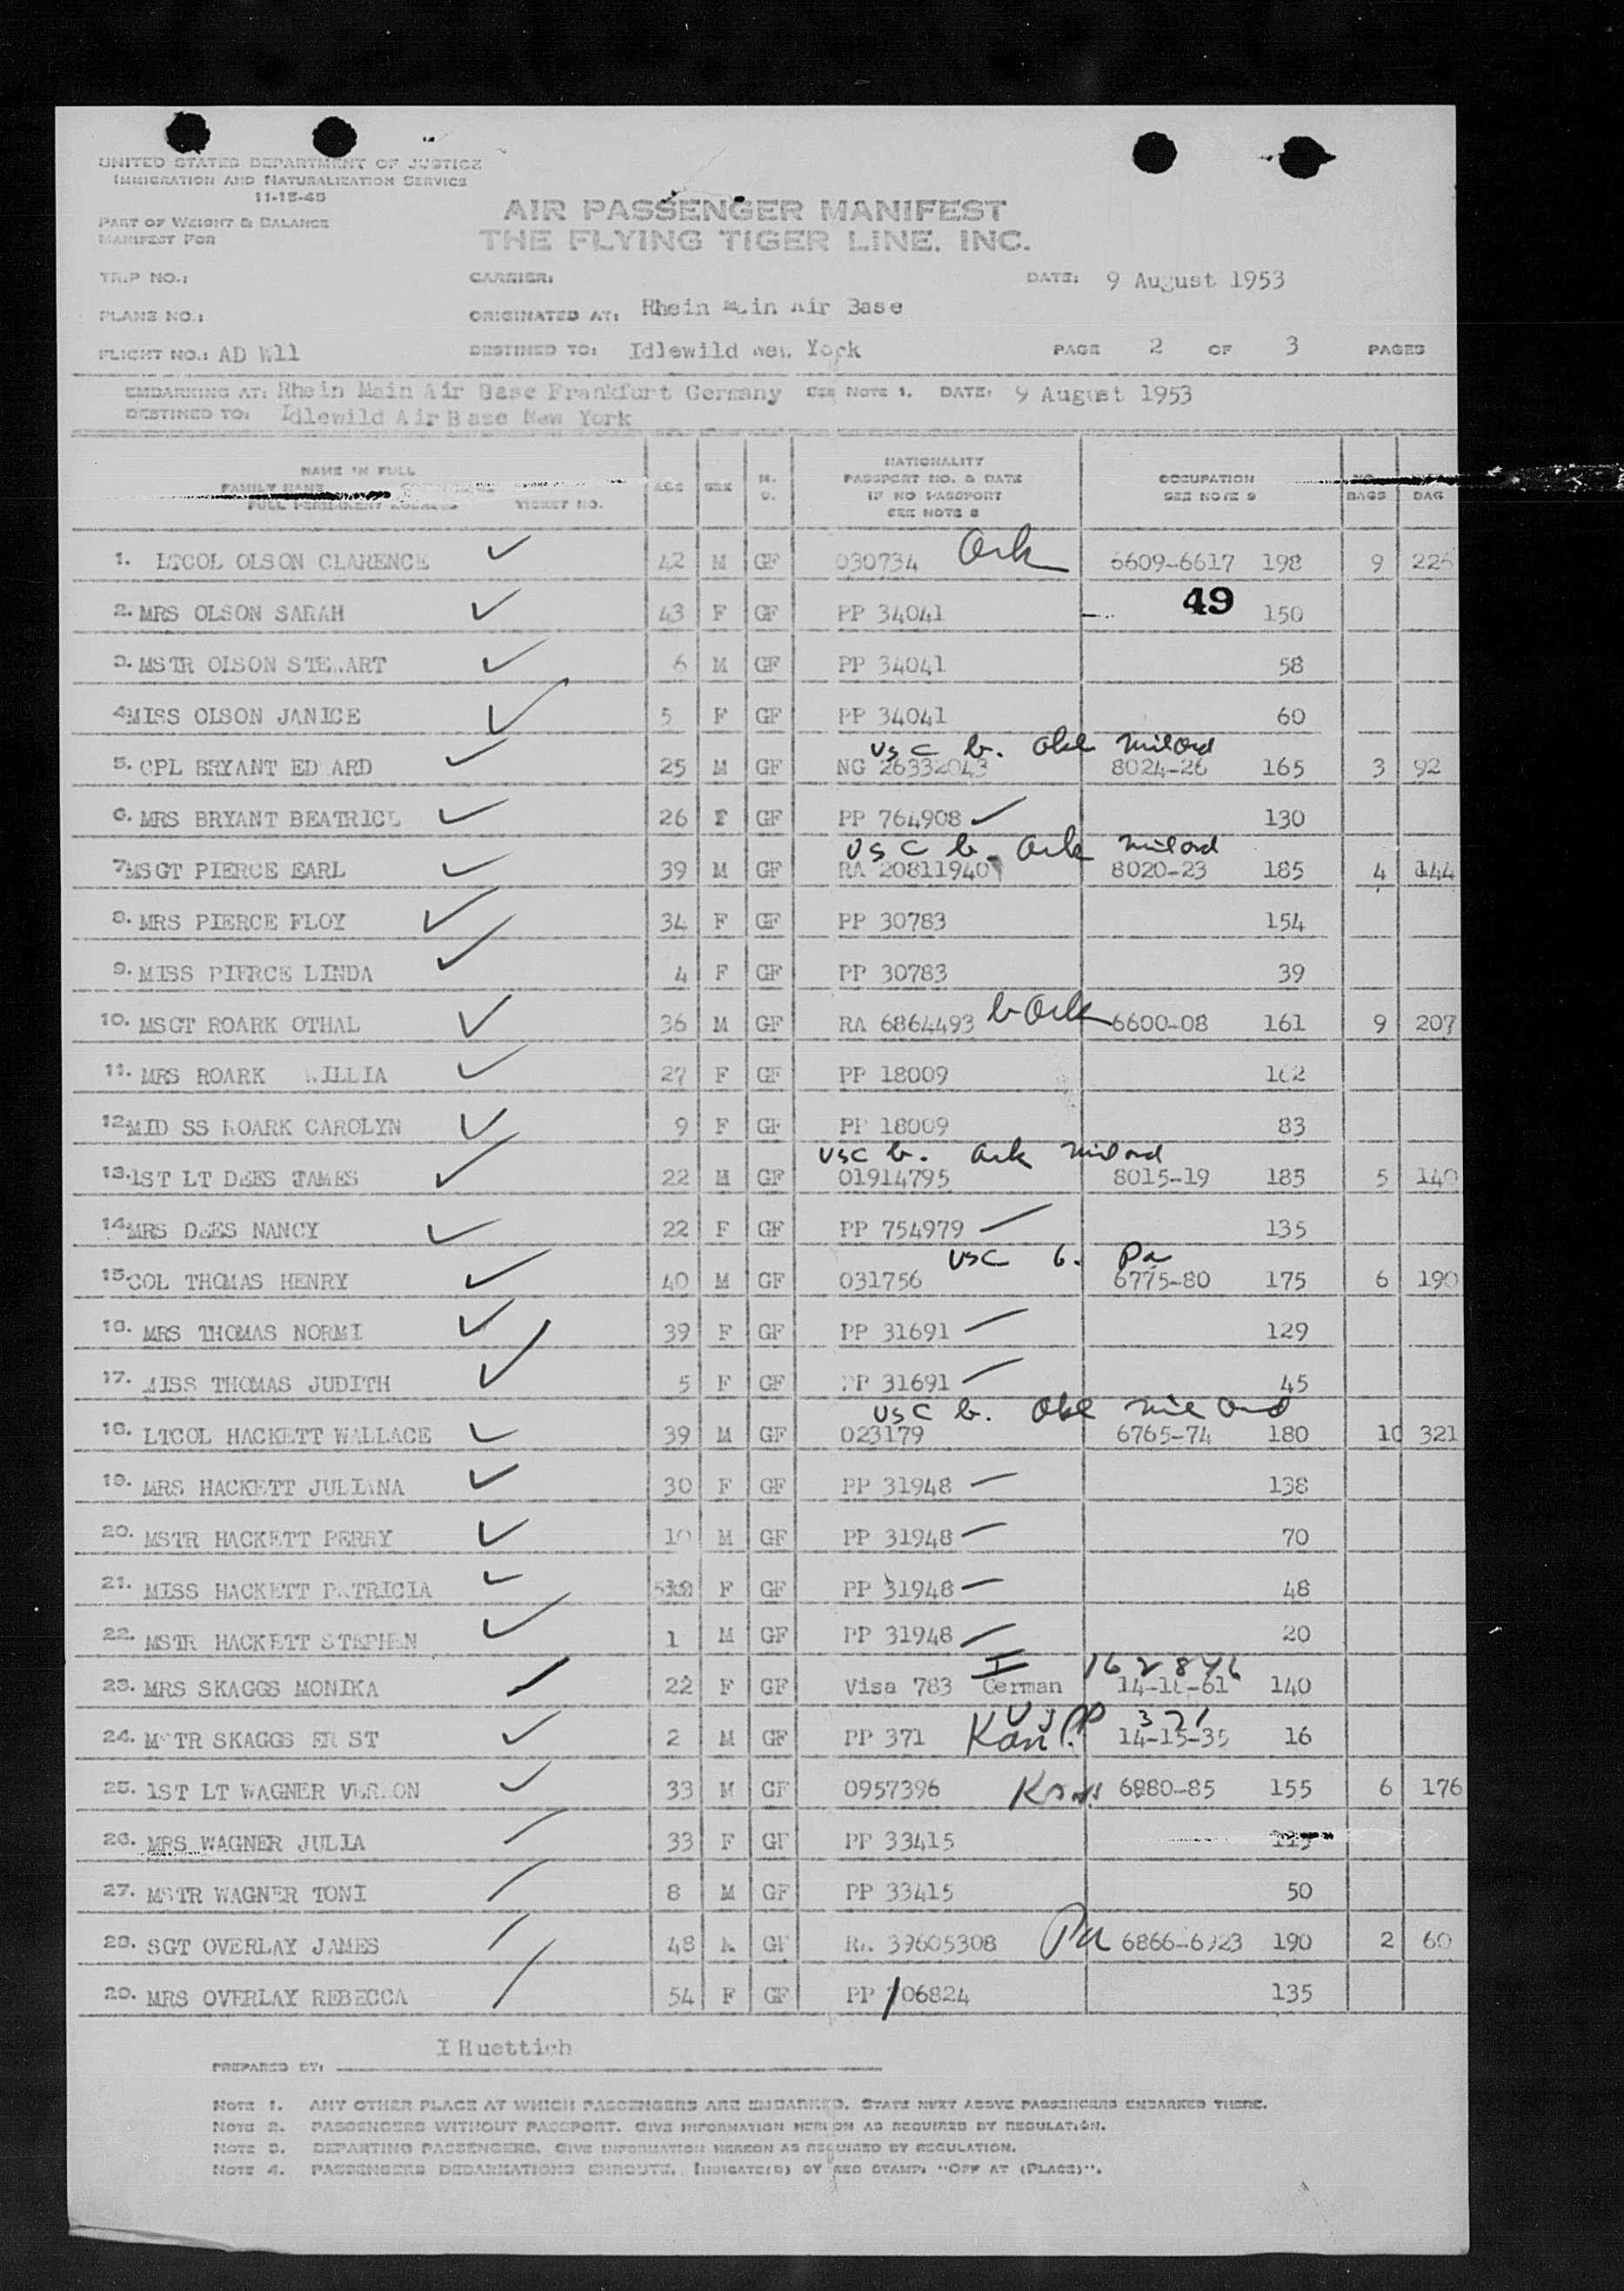 UNITED STATES DEPARTMENT OF JUSTICE
IMMIGRATION AND NATURALIZATION SERVICE
11-15-45
PART OF WEIGHT & BALANCE
MANIFEST FOR
AIR PASSENGER MANIFEST
THE FLYING TIGER LINE, INC.
TRIP NO.: CARRIER: DATE: 9 August 1953
PLANE NO.: ORIGINATED AT: Rhein Main Air Base
FLIGHT NO.: AD W11 DESTINED TO: Idlewild New York PAGE 2 OF 3 PAGES
EMBARKING AT: Rhein Main Air Base Frankfurt Germany SEE NOTE 1. DATE: 9 August 1953
DESTINED TO: Idlewild Air Base New York
NAME IN FULL
FAMILY NAME
FULL PERMANENT ADDRESS TICKET NO.
AGE SEX M. NATIONALITY PASSPORT NO. & DATE IF NO PASSPORT SEE NOTE 2 OCCUPATION SEE NOTE 3 NO. BAGS BAG
1. LTCOL OLSON CLARENCE 42 M GF 030734 Ark 6609-6617 198 9
49
2. MRS OLSON SARAH 43 F GF PP 34041 150
3. MSTR OLSON STE.ART 6 M GF PP 34041 58
4 MISS OLSON JANICE 5 F GF PP 34041 60
USC b. Okl Mil Ord
5. CPL BRYANT ED ARD 25 M GF NG 26332043 8024-26 165 3 92
6. MRS BRYANT BEATRICE 26 F GF PP 764908 130
USC b. Ark Mil Ord
7 MSGT PIERCE EARL 39 M GF RA 20811940 8020-23 185 4 144
8. MRS PIERCE FLOY 34 F GF PP 30783 154
9. MISS PIERCE LINDA 4 F GF PP 30783 39
10. MSGT ROARK OTHAL 36 M GF RA 6864493 b Ark 6600-08 161 9 207
11. MRS ROARK .ILLIA 27 F GF PP 18009
12 MID SS ROARK CAROLYN 9 F GF PP 18009 83
USC b. Ark Mil Ord
13. 1ST LT DEES JAMES 22 M GF 01914795 8015-19 185 5 140
14 MRS DEES NANCY 22 F GF PP 754979 135
USC b. Pa
15. COL THOMAS HENRY 40 M GF 031756 6775-80 175 6 190
16. MRS THOMAS NORMI 39 F GF PP 31691 129
17. MISS THOMAS JUDITH 5 F GF PP 31691 45
USC b. Okl Mil Ord
18. LTCOL HACKETT WALLACE 39 M GF 023179 6765-74 180 10 321
19. MRS HACKETT JULIANA 30 F GF PP 31948 138
20. MSTR HACKETT PERRY 10 M GF PP 31948 70
21. MISS HACKETT PATRICIA F GF PP 31948 48
22. MSTR HACKETT STEPHEN 1 M GF PP 31948 20
I 162846
23. MRS SKAGGS MONIKA 22 F GF Visa 783 German 140
US PP 371
24. MSTR SKAGGS ER ST 2 M GF PP 371 Kan 14-15-35 16
25. 1ST LT WAGNER VERNON 33 M GF 0957396 Kans 6880-85 155 6 176
26. MRS WAGNER JULIA 33 F GF PP 33415
27. MSTR WAGNER TONI 8 M GF PP 33415 50
28. SGT OVERLAY JAMES 48 M GF RA 39605308 Pa 6866-6923 190 2 60
29. MRS OVERLAY REBECCA 54 F GF PP 106824 135
I Huettich
PREPARED BY:
NOTE 1. ANY OTHER PLACE AT WHICH PASSENGERS ARE EMBARKED. STATE NEXT ABOVE PASSENGERS EMBARKED THERE.
NOTE 2. PASSENGERS WITHOUT PASSPORT. GIVE INFORMATION HEREON AS REQUIRED BY REGULATION.
NOTE 3. DEPARTING PASSENGERS. GIVE INFORMATION HEREON AS REQUIRED BY REGULATION.
NOTE 4. PASSENGERS DEBARKATIONS ENROUTE. INDICATE(D) BY RED STAMP: "OFF AT (PLACE)".